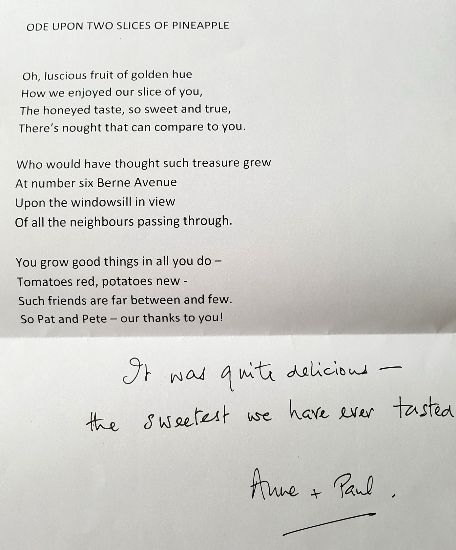 ODE UPON TWO SLICES OF PINEAPPLE
Oh, luscious fruit of golden hue
How we enjoyed our slice of you,
The honeyed taste, so sweet and true,
There's nought that can compare to you.
Who would have thought such treasure grew
At number six Berne Avenue
Upon the windowsill in view
Of all the neighbours passing through.
You grow good things in all you do –
Tomatoes red, potatoes new -
Such friends are far between and few.
So Pat and Pete – our thanks to you!
It was quite delicious –
the sweetest we have ever tasted
Anne + Paul.